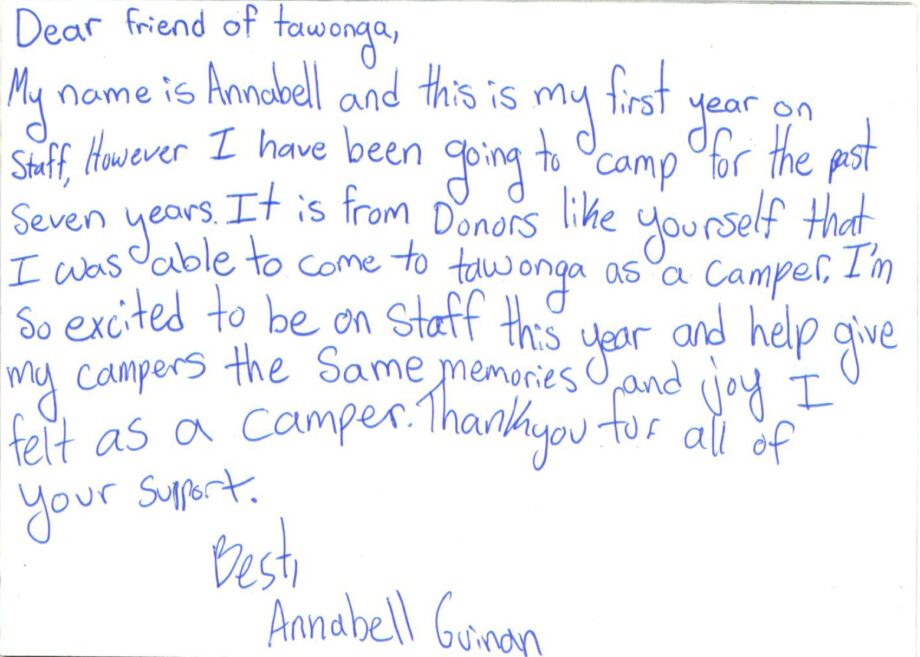 Dear friend of tawonga,
My name is Annabell and this is my first year on
Staff, However I have been going to camp for the past
Seven years. It is from Donors like yourself that
I was able to come to tawonga as a camper. I'm
So excited to be on Staff this year and help give
my campers the Same memories and joy I
felt as a camper. Thankyou for all of
your support.
Best,
Annabell Guinan